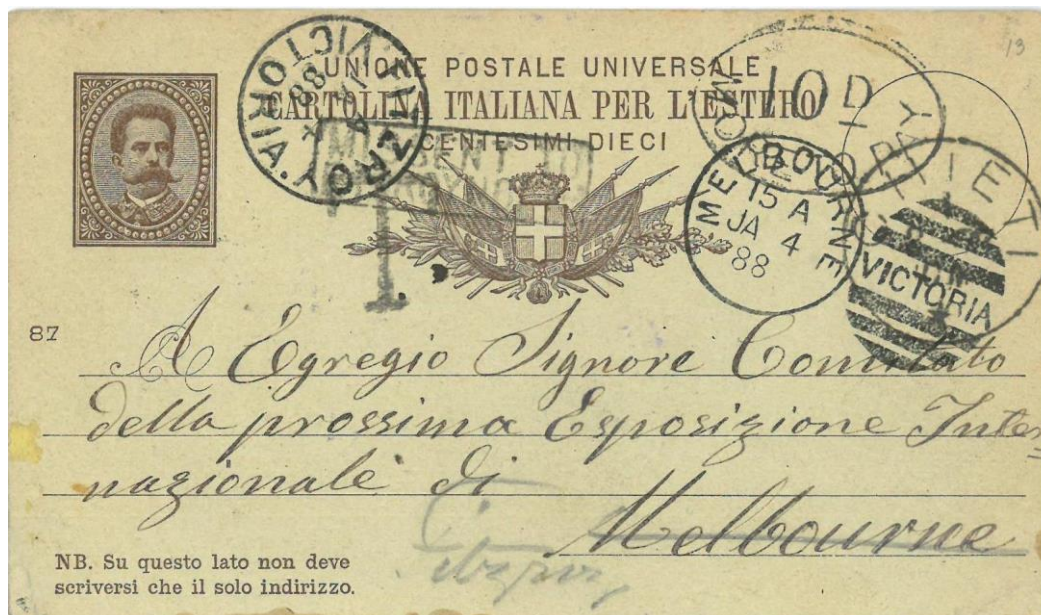 19
UNIONE POSTALE UNIVERSALE
CARTOLINA ITALIANA PER L'ESTERO
CENTESIMI DIECI
FITZROY VICTORIA
JA 4
88
T
10D
TO PAY
MELBOURNE
15 A
JA 4
88
VICTORIA
87
A Egregio Signore Comitato
della prossima Esposizione Inter
nazionale di
Melbourne
Fitzroy
NB. Su questo lato non deve
scriversi che il solo indirizzo.